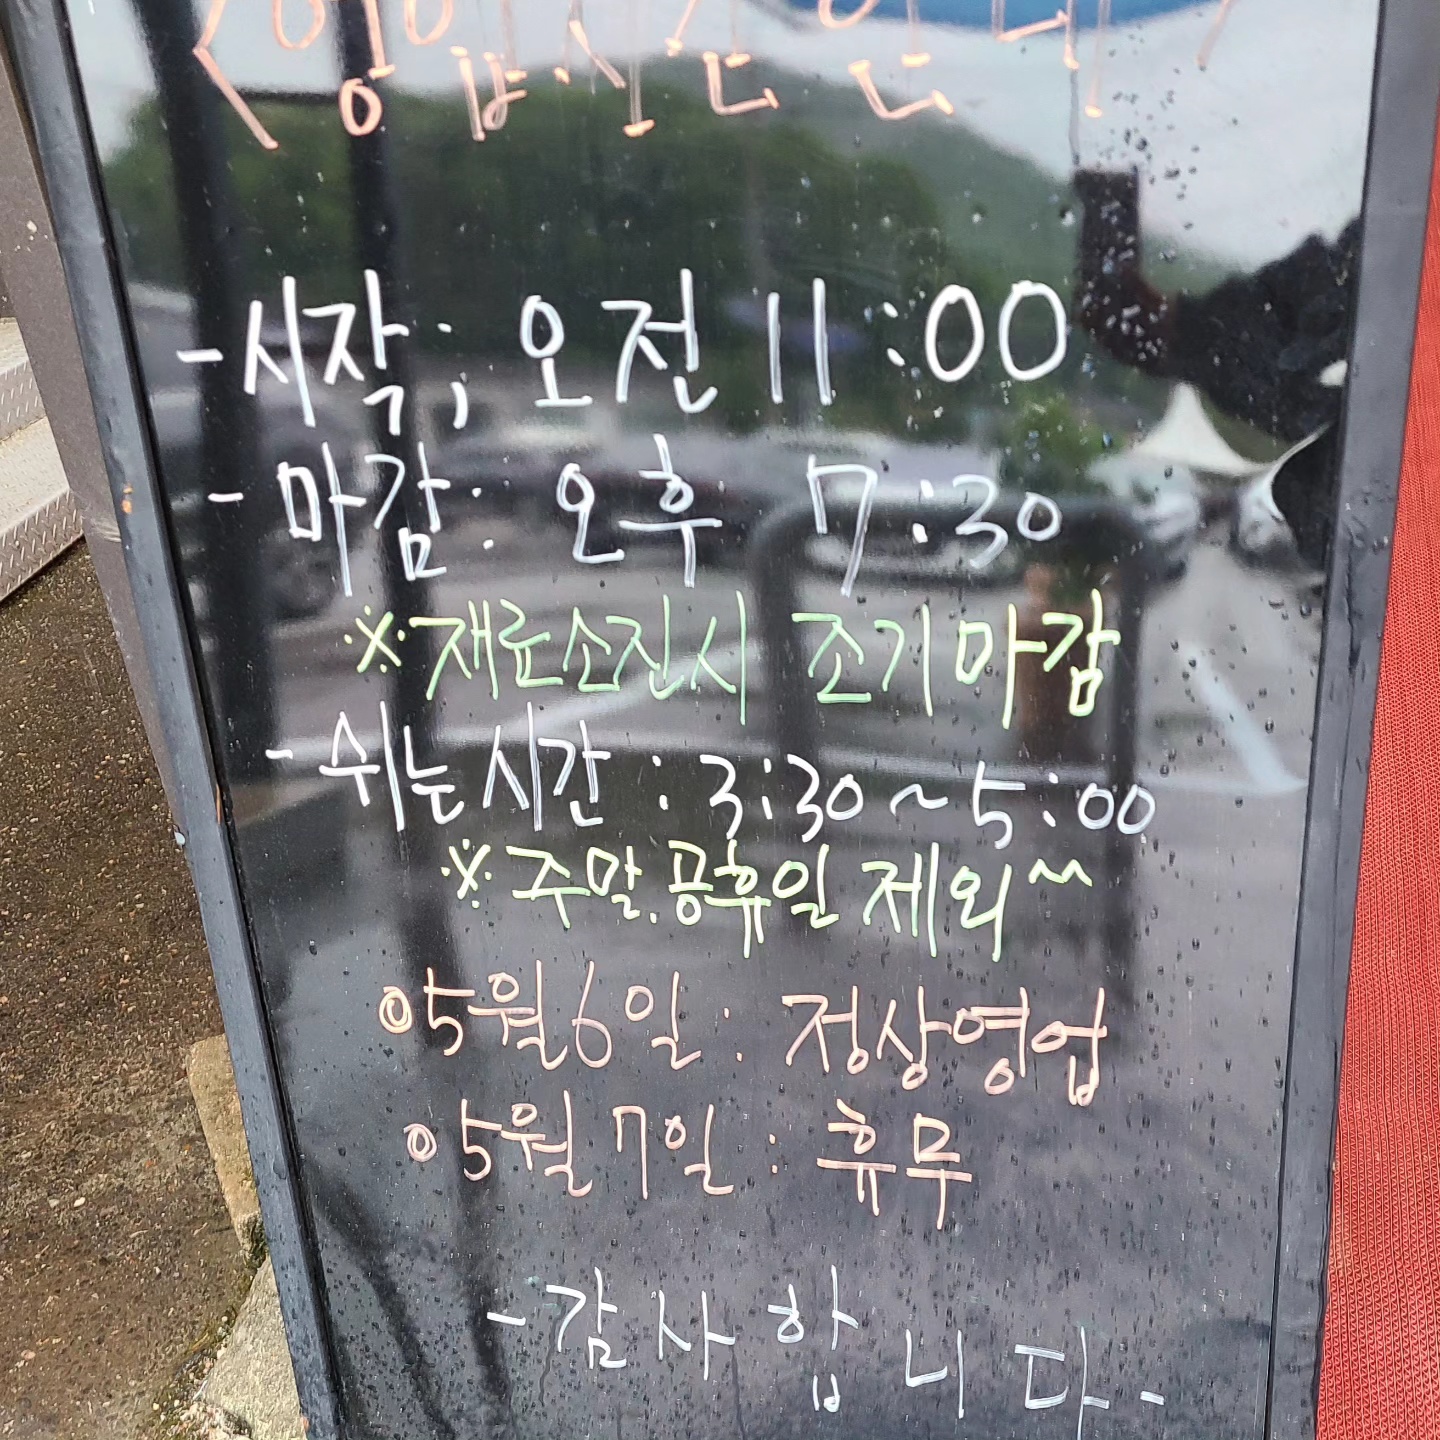 <영업시간안내>
-시작; 오전 11:00
-마감: 오후 7:30
※재료소진시 조기마감
-쉬는시간 : 3:30~5:00
※주말.공휴일 제외~
05월6일: 정상영업
05월7일: 휴무
-감사합니다-